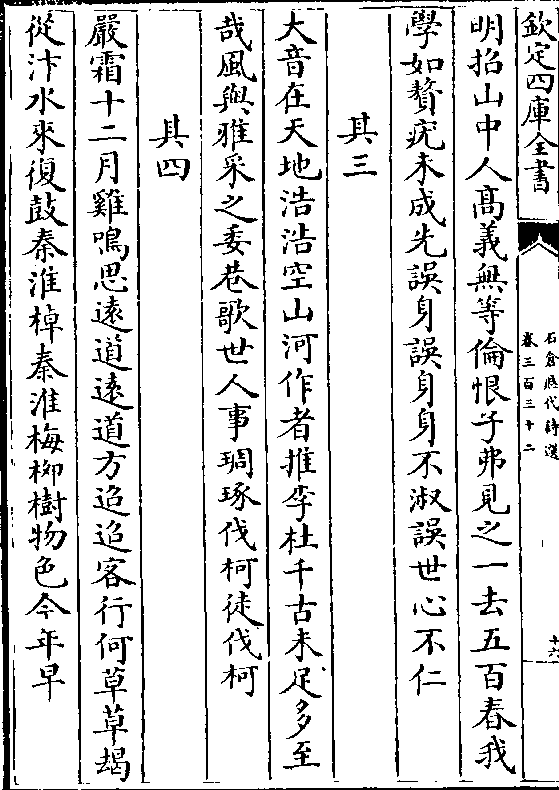 欽定四庫全書
石倉歷代詩選
卷三百三十二
十六
明招山中人高義無等倫恨予弗見之一去五百春我
學如贅疣未成先誤身誤身身不淑誤世心不仁
其三
大音在天地浩浩空山河作者推李杜千古未足多至
哉風與雅采之委巷歌世人事琱琢伐柯徒伐柯
其四
嚴霜十二月雞鳴思遠道遠道方迢迢客行何草草朅
從汴水來復鼓秦淮棹秦淮梅栁樹物色今年早